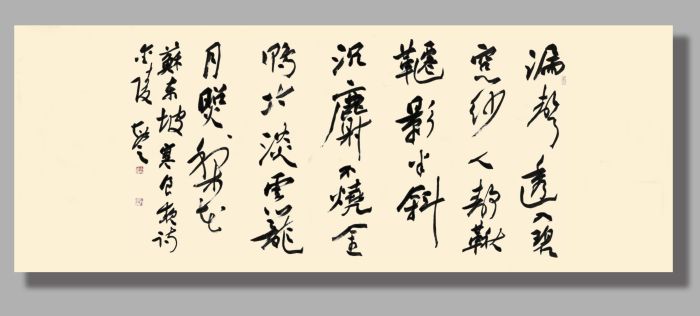 漏聲透入碧
窓紗人靜鞦
韆影半斜
沉麝不燒金
鴨冷淡雲籠
月照梨花
蘇東坡寒食夜詩
金陵